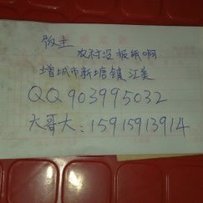 版主
农村没板纸啊
增城市新塘镇江美
QQ903995032
大哥大:15915913914